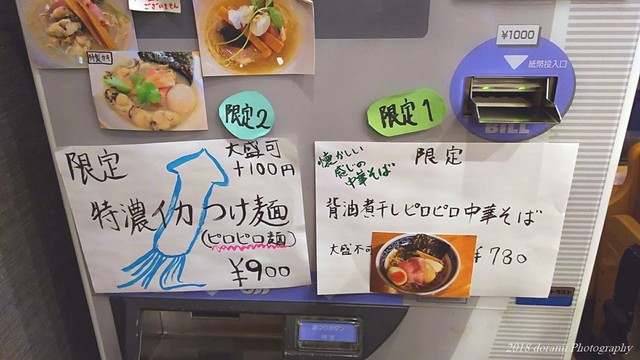 ございません
¥1000
紙幣投入口
BILL
特製カキ
限定2
限定1
限定
大盛可
+100円
特濃イカつけ麺
(ピロピロ麺)
¥900
懐かしい
感じの
中華そば
限定
背油煮干しピロピロ中華そば
大盛不可
¥780
2018 dorami Photography